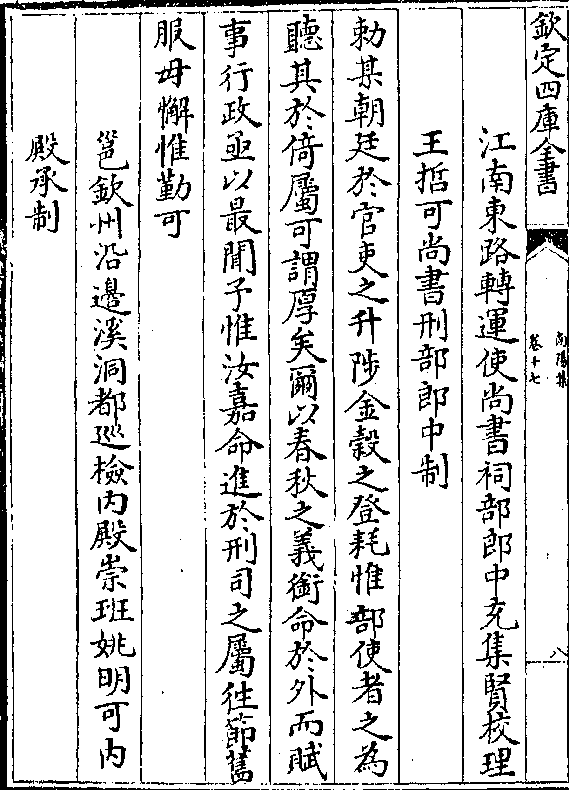 欽定四庫全書
南陽集
卷十七
八
江南東路轉運使尚書祠部郎中充集賢校理
王哲可尚書刑部郎中制
勅某朝廷於官吏之升陟金穀之登耗惟部使者之為
聽其於倚屬可謂厚矣爾以春秋之義銜命於外而賦
事行政亟以最聞予惟汝嘉命進於刑司之屬往節舊
服毋懈惟勤可
邕欽州沿邉溪洞都巡檢内殿崇班姚明可内
殿承制